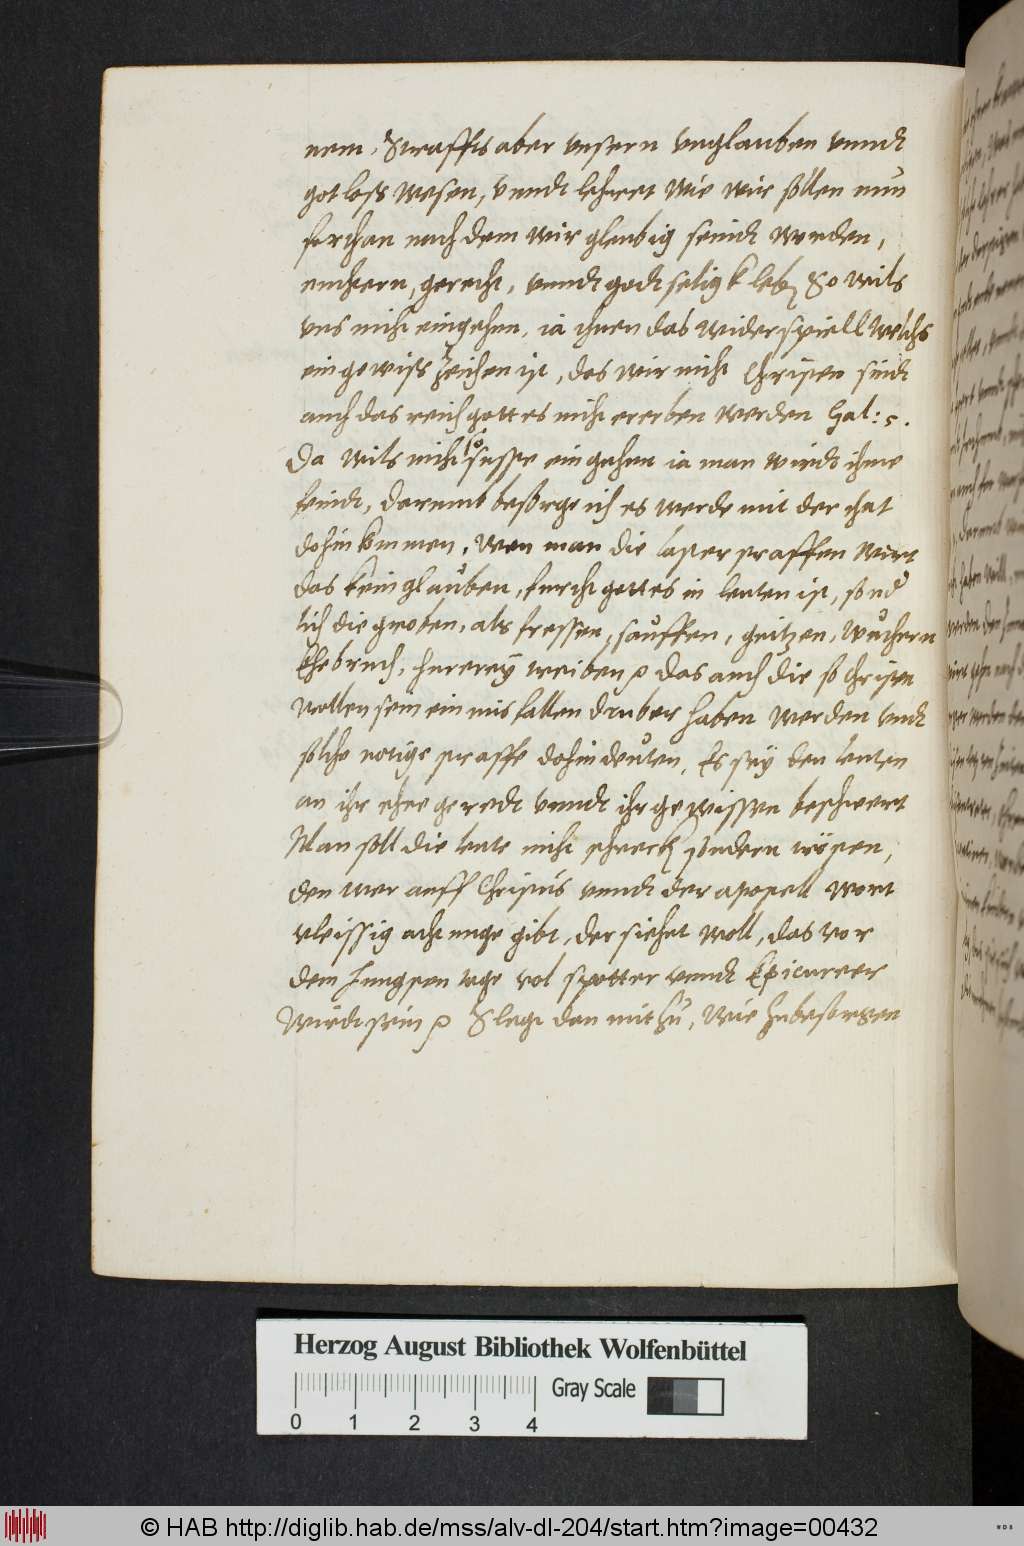 nem, Straffts aber unsern unglauben unndt
gotloss wesen, unndt lehret wie wir sollen nun
forthan nach dem wir gleubig seindt worden,
nuchtern, gerecht, unndt godtseligk leben So wils
uns nicht eingehen, ia thuen das widerspiell welchs
ein gewiss zeichen ist, das wir nicht Christen sindt
auch das reich gottes nicht ererben werden Gal: 5.
Da wils nicht so susse eingehen ia man wirdt ihme
feindt, Darumb besorge ich es werde mit der that
dohin kommen, Wen man die laster straffen wirt
das kein glauben, furcht gottes in leuten ist, sond
lich die groben, als fressen, sauffen, geitzen, wuchern
Ehebruch, hurerey treiben das auch die so Christen
wollen sein ein misfallen druber haben werden undt
solche notige straffe dohin deuten, Es sey den leuten
an ihr ehre geredt unndt ihr gewissen beschwert
Man soll die leute nicht schrecken sondern trösten,
den wer auff Christus unndt der apostell wort
vleissig achtunge gibt, der siehet woll, das vor
dem Jungsten tage vol spotter unndt Epicureer
Wirdt sein Slegt dan mit zu, Wie zubesorgen
Herzog August Bibliothek Wolfenbüttel
Gray Scale
0 1 2 3 4
© HAB http://diglib.hab.de/mss/alv-dl-204/start.htm?image=00432